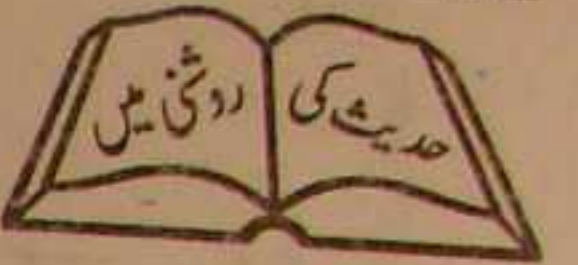 حدیث کی روشنی میں